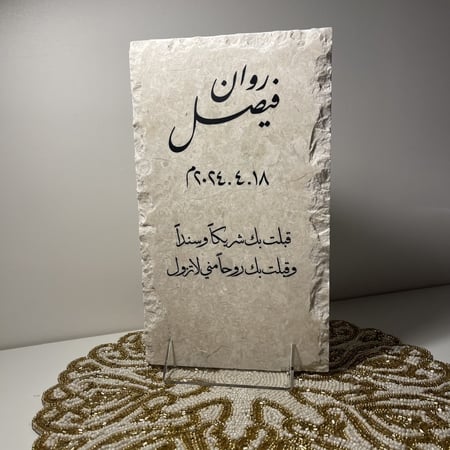 روان
فيصل
٢٠٢٤.٤.١٨م
قبلت بك شريكاً وسنداً
وقبلت بك روحاً مني لا تزول